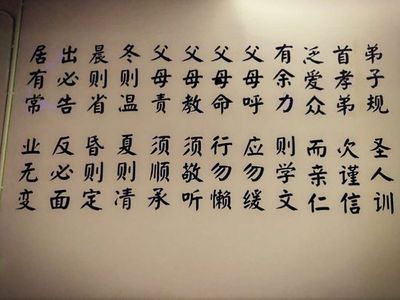 弟子规 圣人训
首孝弟 次谨信
泛爱众 而亲仁
有余力 则学文
父母呼 应勿缓
父母命 行勿懒
父母教 须敬听
父母责 须顺承
冬则温 夏则凊
晨则省 昏则定
出必告 反必面
居有常 业无变